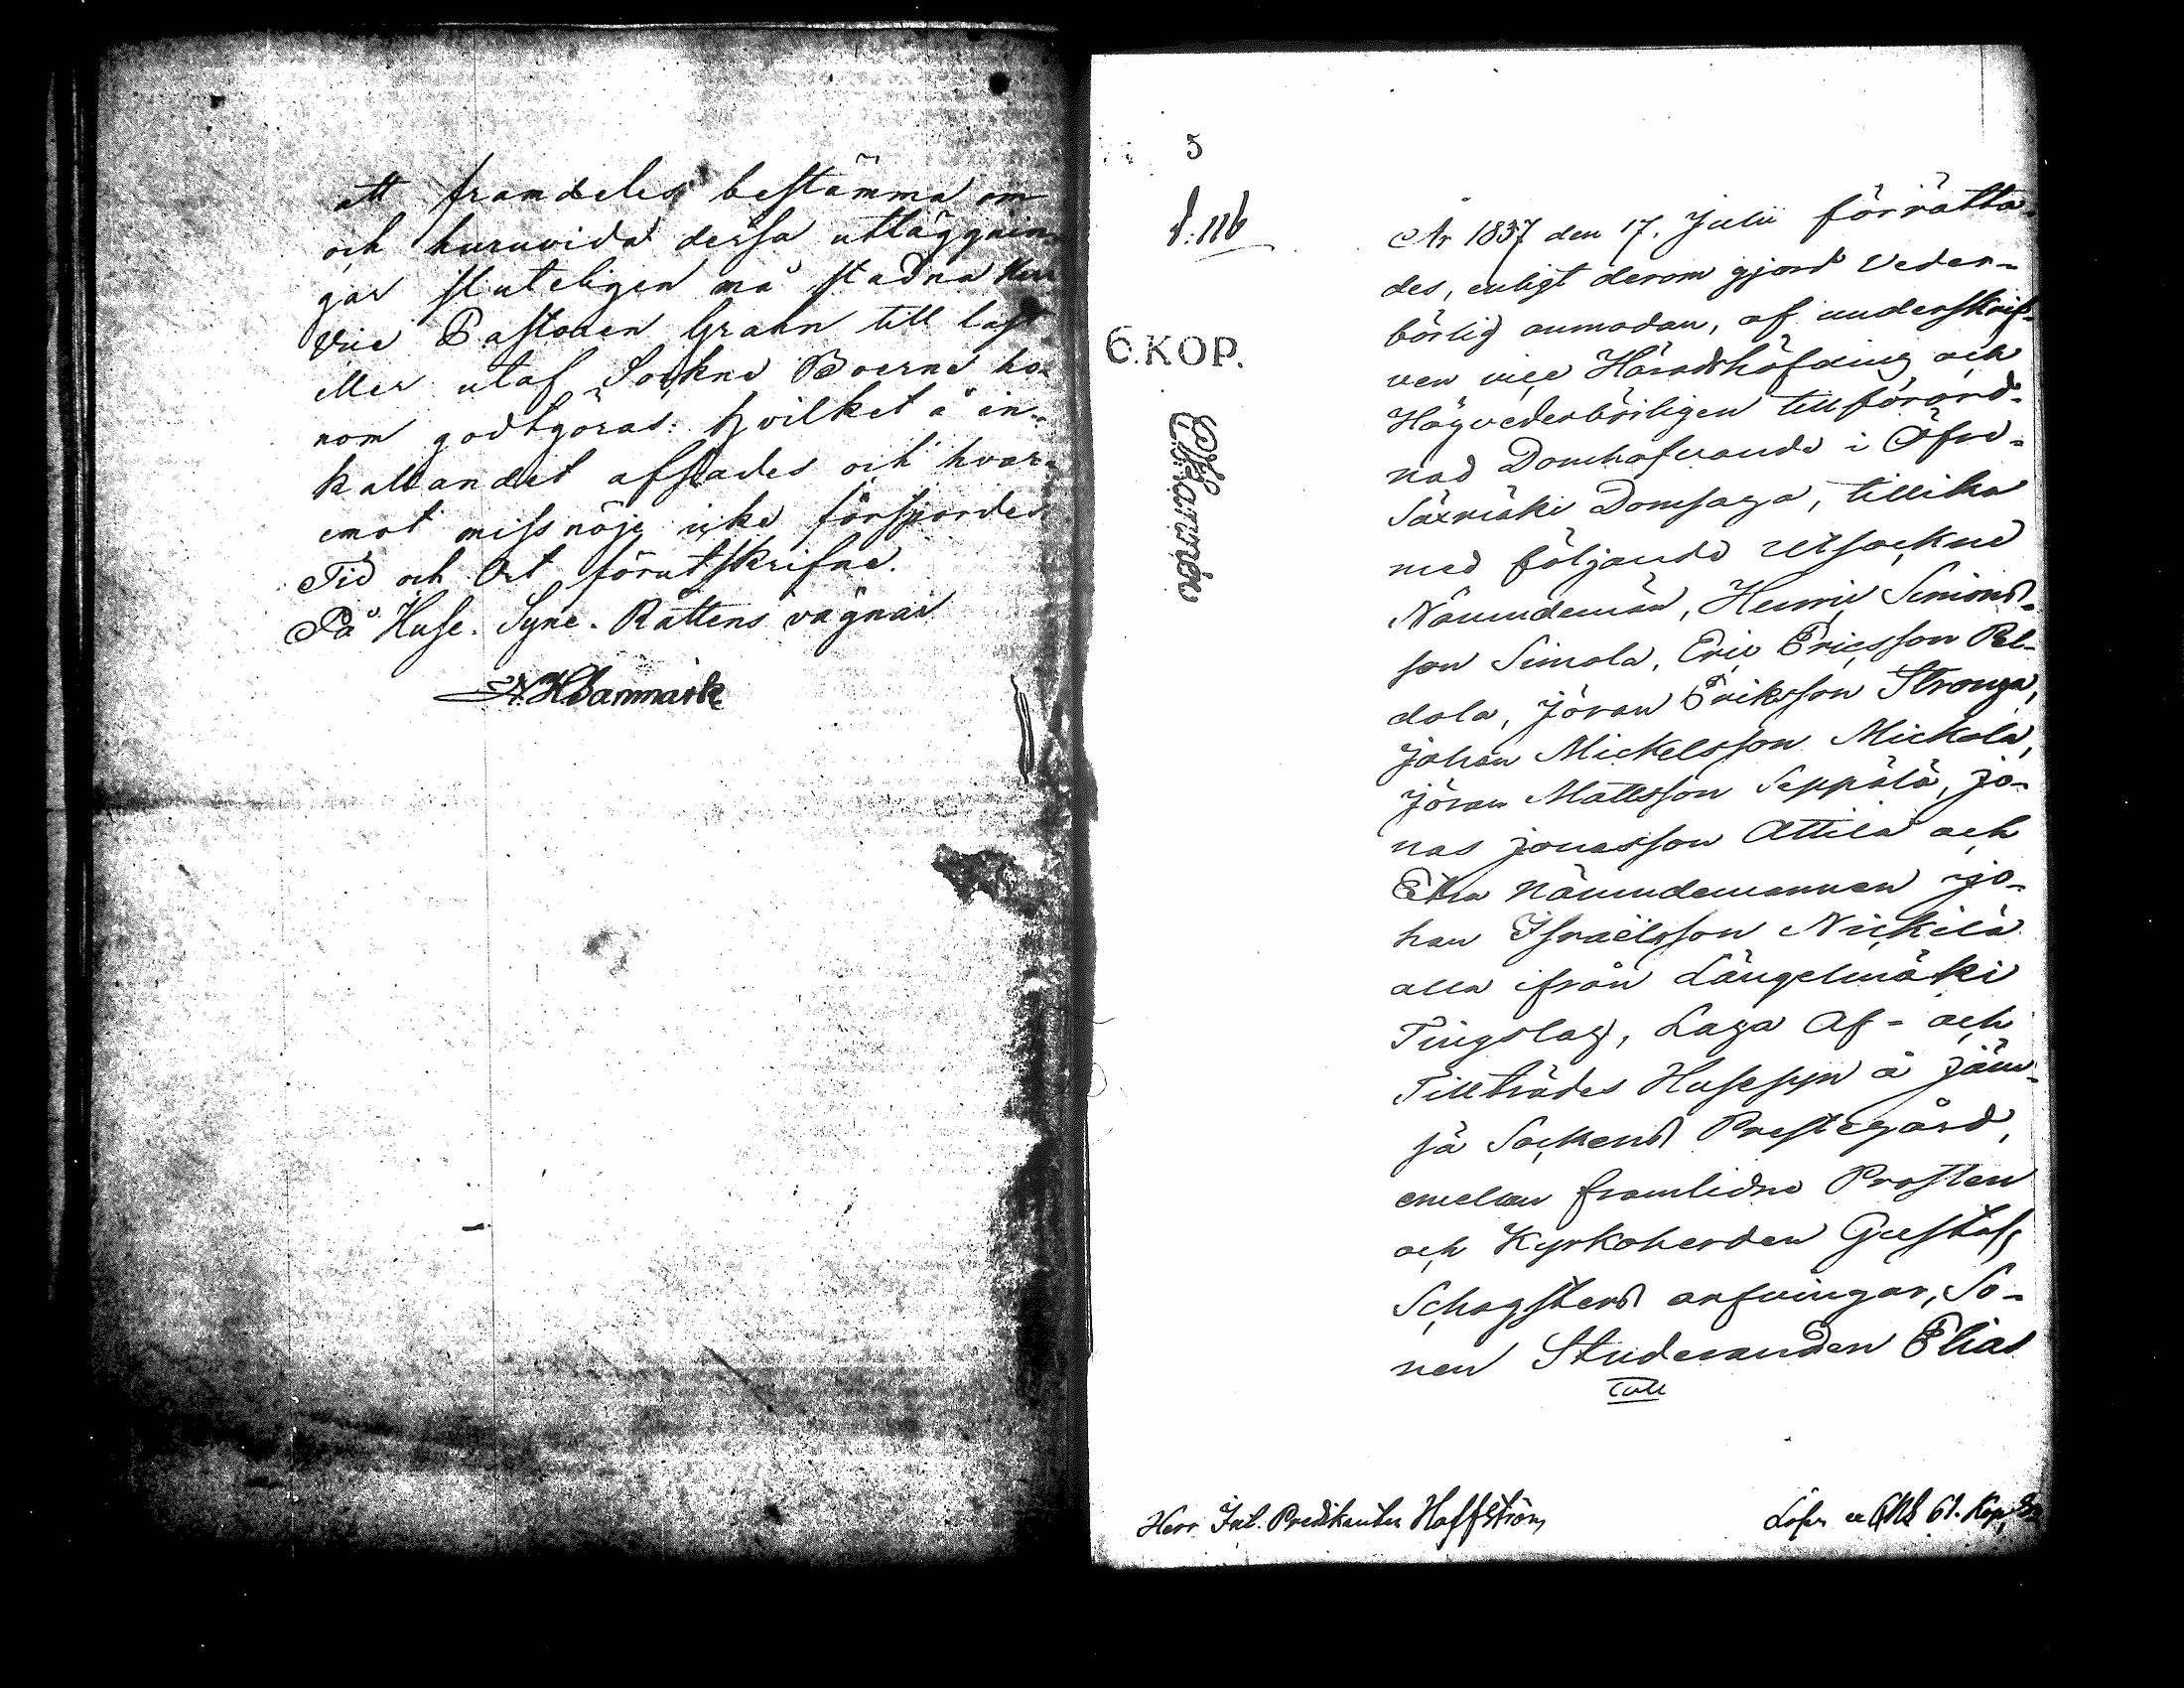 att framdeles bestämma om
och huruvida dessa utläggnin-
gar sluteligen må stadna Herr
Vice Pastoren Grahn till last
eller utaf Sockne Boerne ho-
nom godtgöras: hvilket å in-
kallandet afsades och hvar-
emot missnöje icke förspordes.
Tid och Ort förutskrifne.
På Huse-Syne-Rättens vägnar
N. H. Danmark
5
S: 116
6.KOP.
År 1837 den 17. Julii förrätta-
des, enligt derom gjord Veder-
börlig anmodan, af underskrif-
ven vice Häradshöfding och
Högvederbörligen tillförord-
nad Domhafvande i Öfre-
Säxmäki Domsaga, tillika
med följande utsockne
Nämndemän, Henric Simons-
son Simola, Eric Ericsson Pel-
dola, Jöran Eriksson Stronga,
Johan Mickelsson Mickola,
Jöran Mattsson Seppälä, Jo-
nas Jonasson Attila och
Extra Nämndemannen Jo-
han Israëlsson Nickilä
alla ifrån Längelmäki
Tingslag, Laga Af- och
Tillträdes Husesyn å Jäm-
sä Sockens Prestegård,
emellan framlidne Prosten
och Kyrkoherden Gustaf
Schogsters arfvingar, So-
nen Studeranden Elias
Herr Int. Predikanten Hoffström
Löser 61. Kop.